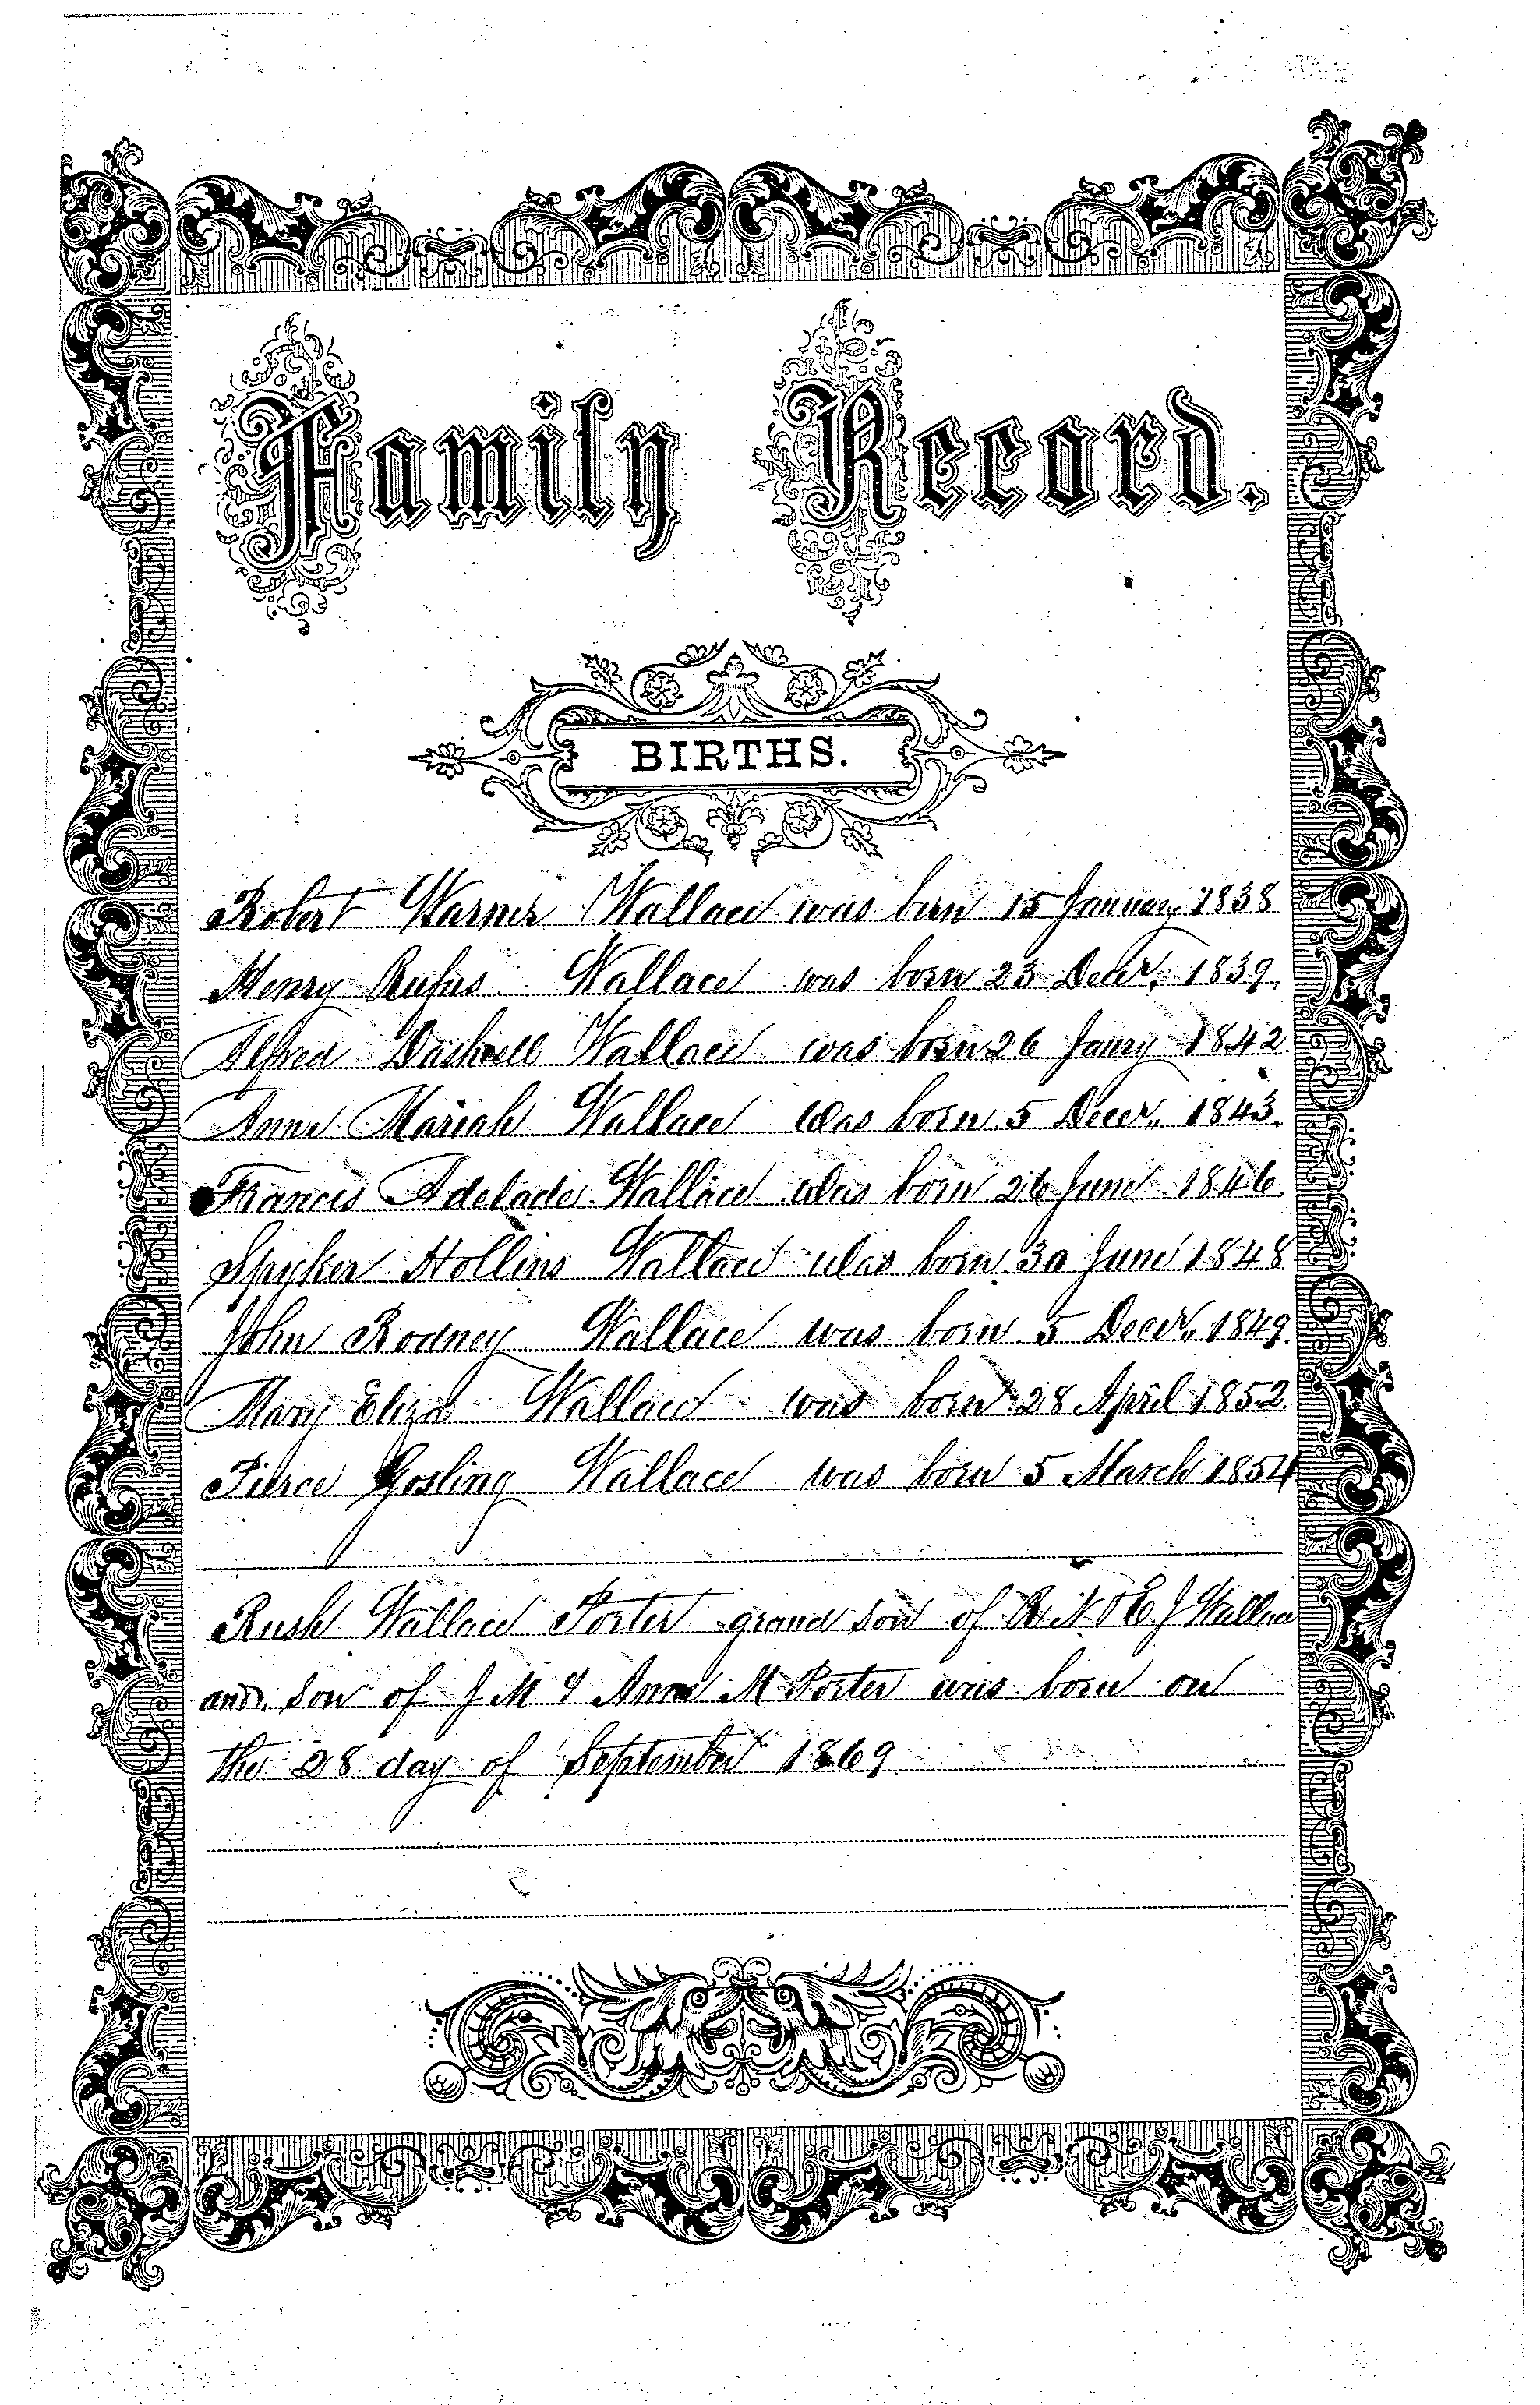 Family Record.
BIRTHS.
Robert Warner Wallace was born 15 January 1838
Henry Rufus Wallace was born 23 Decr. 1839.
Alfred Dashiell Wallace was born 26 Jany 1842
Anna Mariah Wallace was born 5 Decr. 1843.
Francis Adelade Wallace was born 26 June 1846.
Spyker Hollins Wallace was born 30 June 1848
John Rodney Wallace was born 5 Decr. 1849.
Mary Eliza Wallace was born 28 April 1852
Pierce Gosling Wallace was born 5 March 1854
Rush Wallace Porter grand son of & E J Wallace
and son of J M & Anna M Porter was born on
the 28 day of September 1869